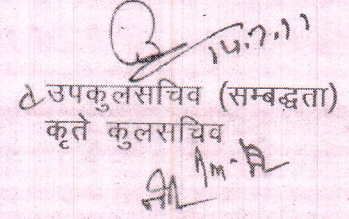 14.7.11
उपकुलसचिव (सम्बद्धता)
कृते कुलसचिव